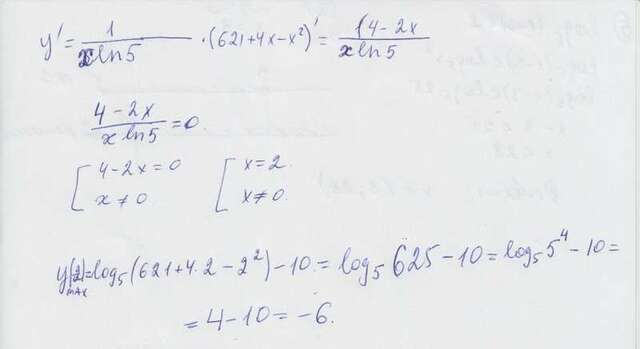 y' = 1/(x ln 5) · (621+4x-x²)' = (4-2x/(x ln 5)
(4-2x)/(x ln 5) = 0
[ 4-2x=0 [ x=2
[ x≠0 [ x≠0
y(2)max = log₅(621+4·2-2²)-10 = log₅625-10 = log₅5⁴-10 =
= 4-10 = -6.